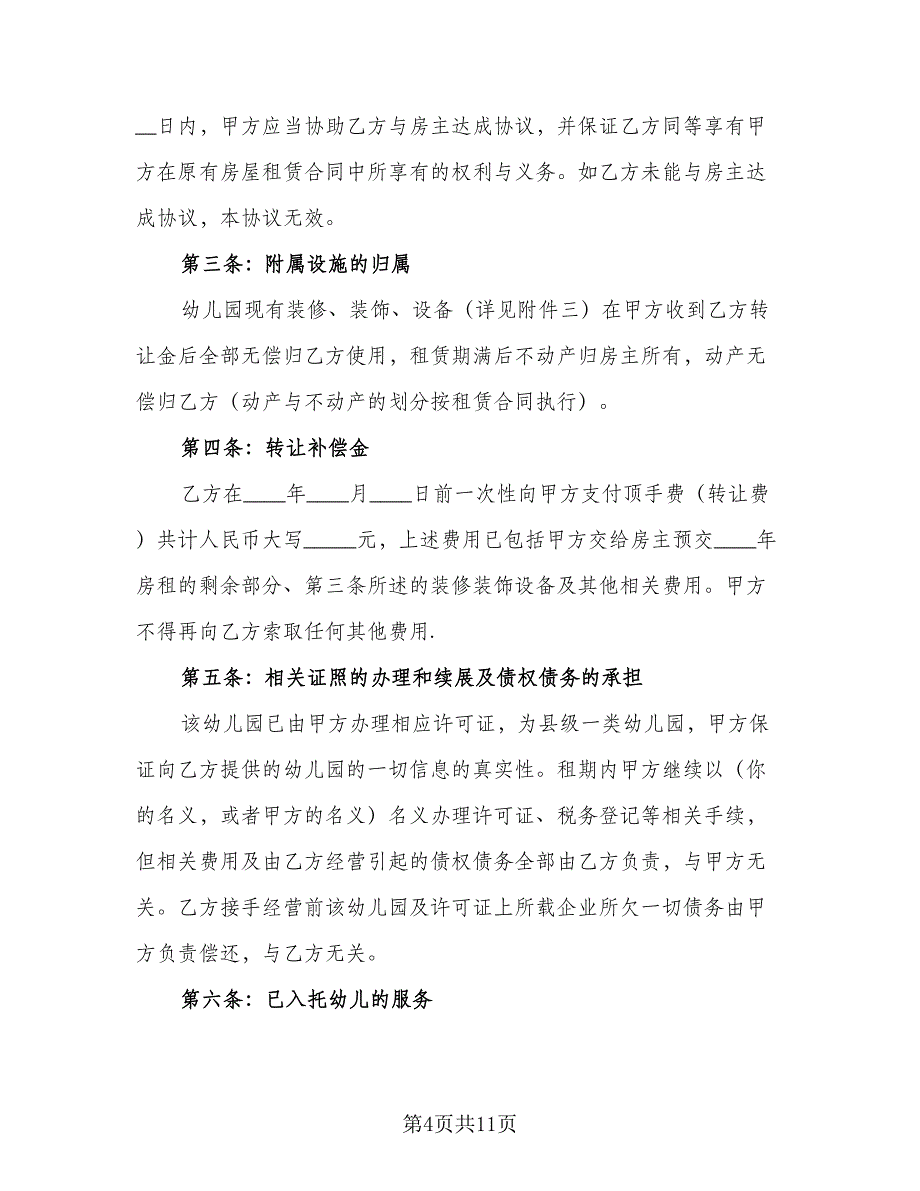 __日内，甲方应当协助乙方与房主达成协议，并保证乙方同等享有甲
方在原有房屋租赁合同中所享有的权利与义务。如乙方未能与房主达
成协议，本协议无效。
第三条：附属设施的归属
幼儿园现有装修、装饰、设备（详见附件三）在甲方收到乙方转
让金后全部无偿归乙方使用，租赁期满后不动产归房主所有，动产无
偿归乙方（动产与不动产的划分按租赁合同执行）。
第四条：转让补偿金
乙方在____年____月____日前一次性向甲方支付顶手费（转让费
）共计人民币大写_____元，上述费用已包括甲方交给房主预交____年
房租的剩余部分、第三条所述的装修装饰设备及其他相关费用。甲方
不得再向乙方索取任何其他费用.
第五条：相关证照的办理和续展及债权债务的承担
该幼儿园已由甲方办理相应许可证，为县级一类幼儿园，甲方保
证向乙方提供的幼儿园的一切信息的真实性。租期内甲方继续以（你
的名义，或者甲方的名义）名义办理许可证、税务登记等相关手续，
但相关费用及由乙方经营引起的债权债务全部由乙方负责，与甲方无
关。乙方接手经营前该幼儿园及许可证上所载企业所欠一切债务由甲
方负责偿还，与乙方无关。
第六条：已入托幼儿的服务
第4页共11页